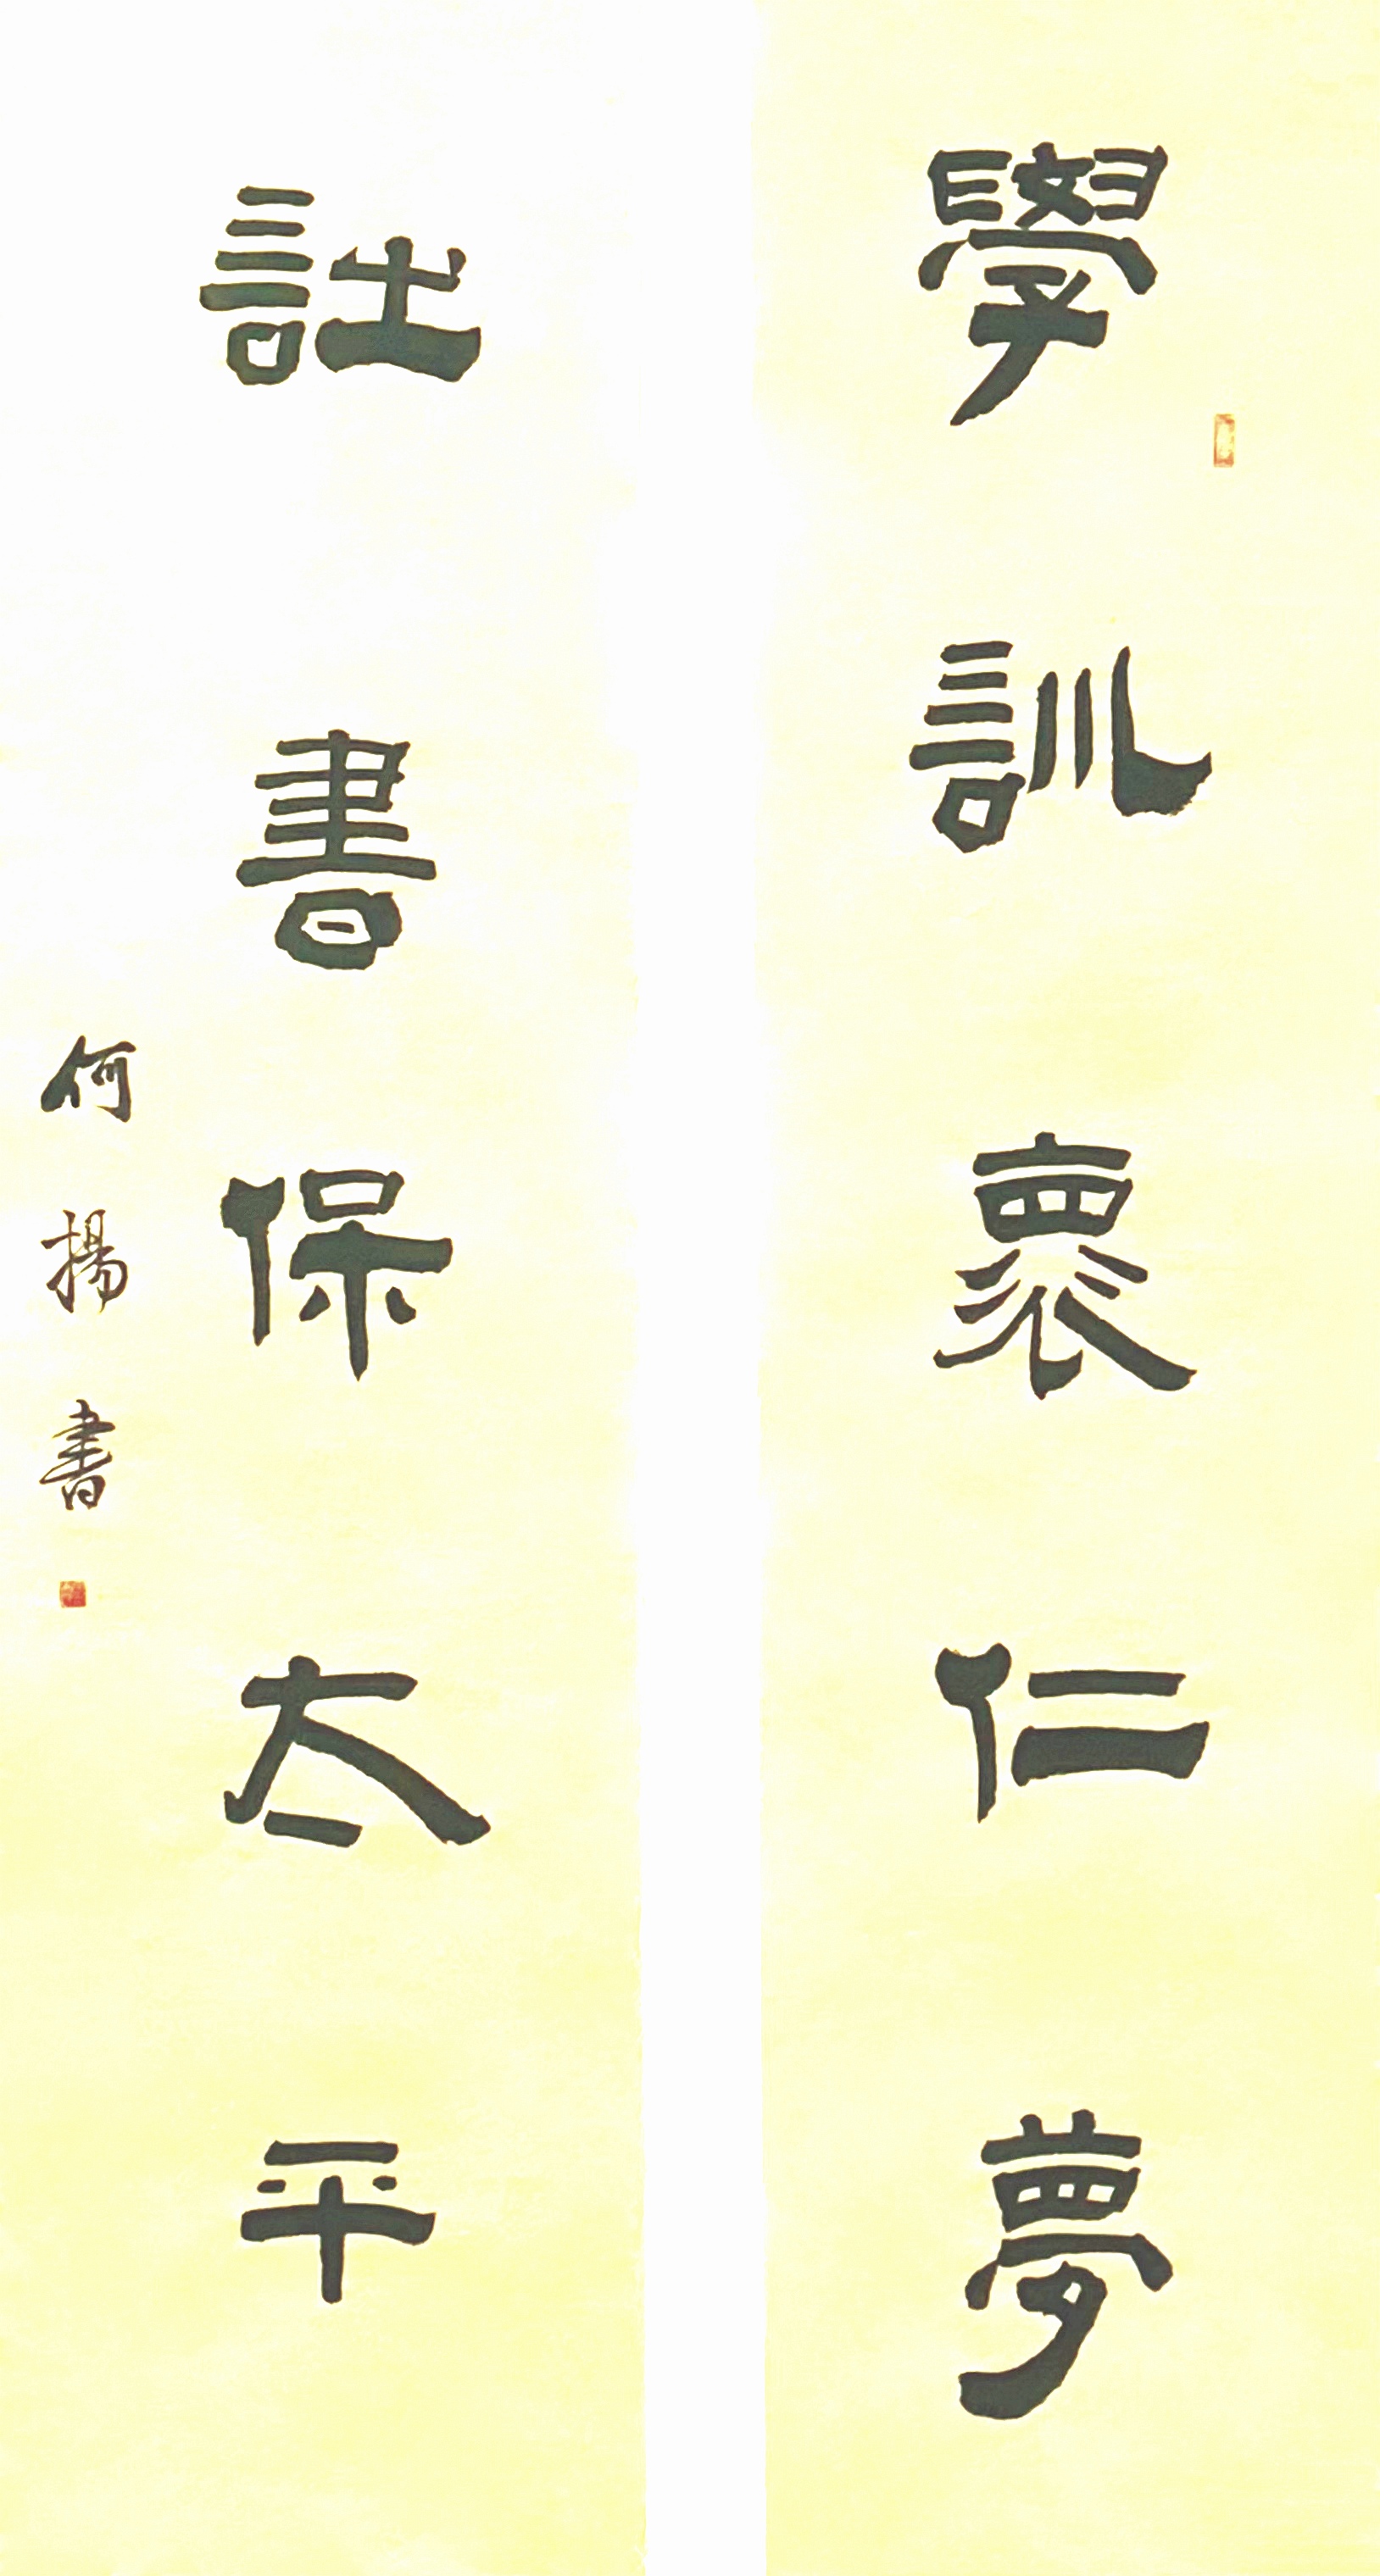 學訓褱仁夢
詩書保太平
何揚書